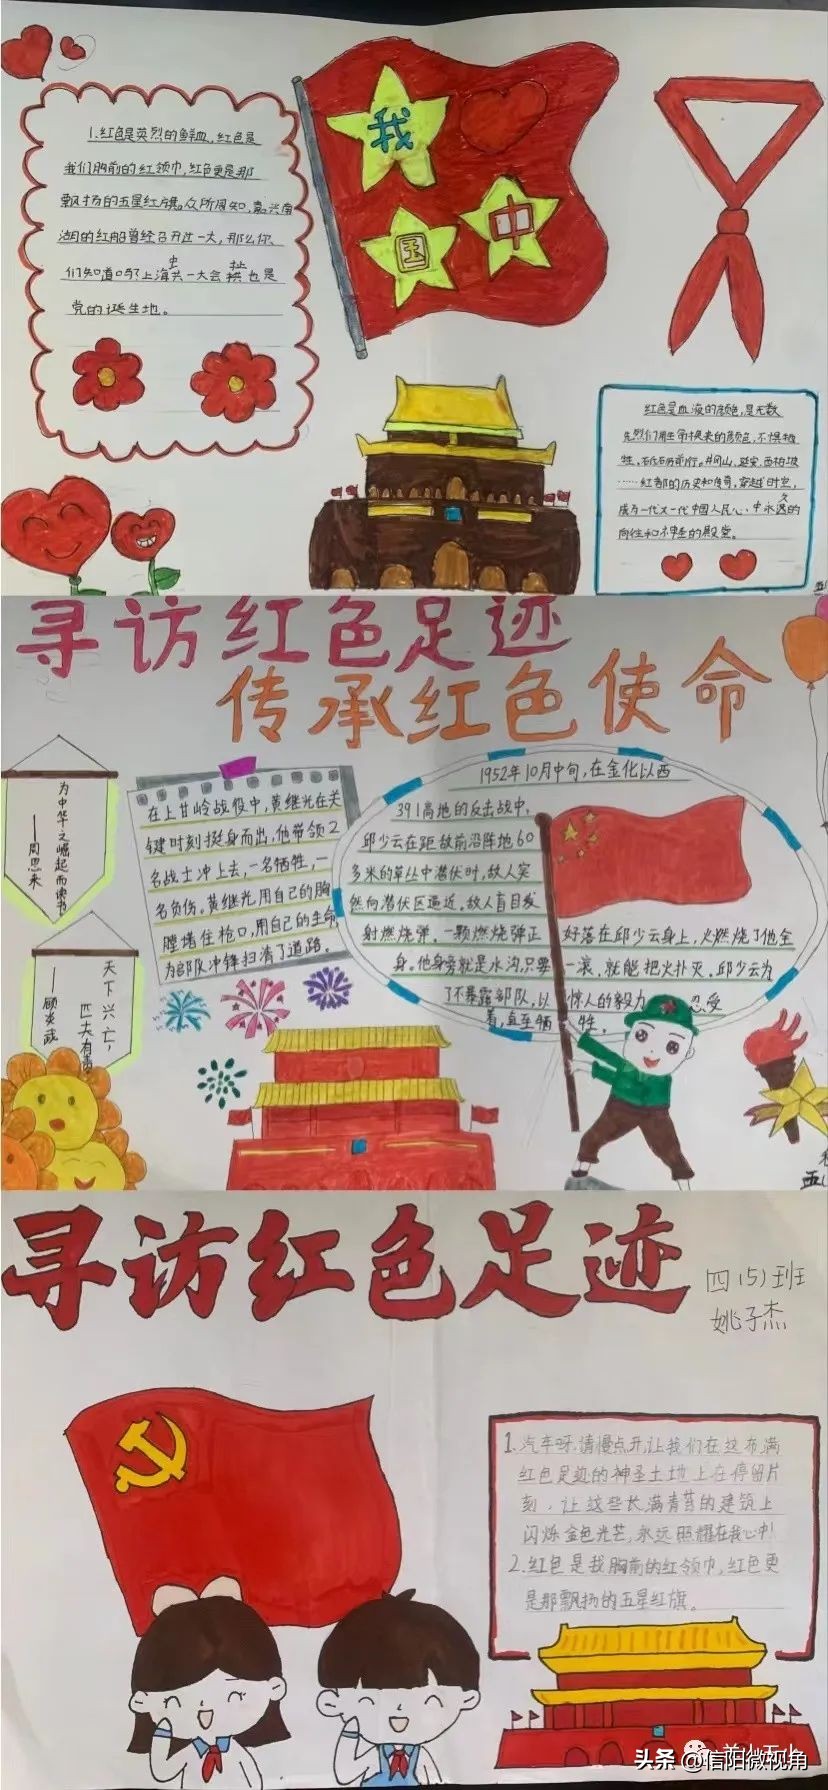 1.红色是英烈的鲜血,红色是
我们胸前的红领巾,红色更是那
飘扬的五星红旗。众所周知,嘉兴南
湖的红船曾经召开过一大,那么你
们知道吗?上海中共一大会址也是
党的诞生地。
我
中
国
红色是血液的颜色,是无数
先烈们用生命换来的颜色,不惧牺
牲,砥砺前行。井冈山、延安、西柏坡
……红都的历史和传奇,穿越时空,
成为一代又一代中国人民心中永久的
向往和神圣的殿堂。
寻访红色足迹
传承红色使命
为中华之崛起而读书
——周恩来
天下兴亡,
匹夫有责
——顾炎武
在上甘岭战役中,黄继光在关
键时刻挺身而出,他带领2
名战士冲上去,一名牺牲,一
名负伤。黄继光用自己的胸
膛堵住枪口,用自己的生命
为部队冲锋扫清了道路。
1952年10月中旬,在金化以西
391高地的反击战中,
邱少云在距敌前沿阵地60
多米的草丛中潜伏时,敌人突
然向潜伏区逼近。敌人盲目发
射燃烧弹。一颗燃烧弹正好落在邱少云身上,火燃烧了他全
身。他身旁就是水沟,只要一滚,就能把火扑灭。邱少云为
了不暴露部队,以惊人的毅力忍受
着,直至牺牲。
寻访红色足迹
四(5)班
姚子杰
1.汽车呀,请慢点开,让我们在这布满
红色足迹的神圣土地上在停留片
刻,让这些长满青苔的建筑上
闪烁金色光芒,永远照耀在我心中!
2.红色是我胸前的红领巾,红色更
是那飘扬的五星红旗。
头条@信阳微视角